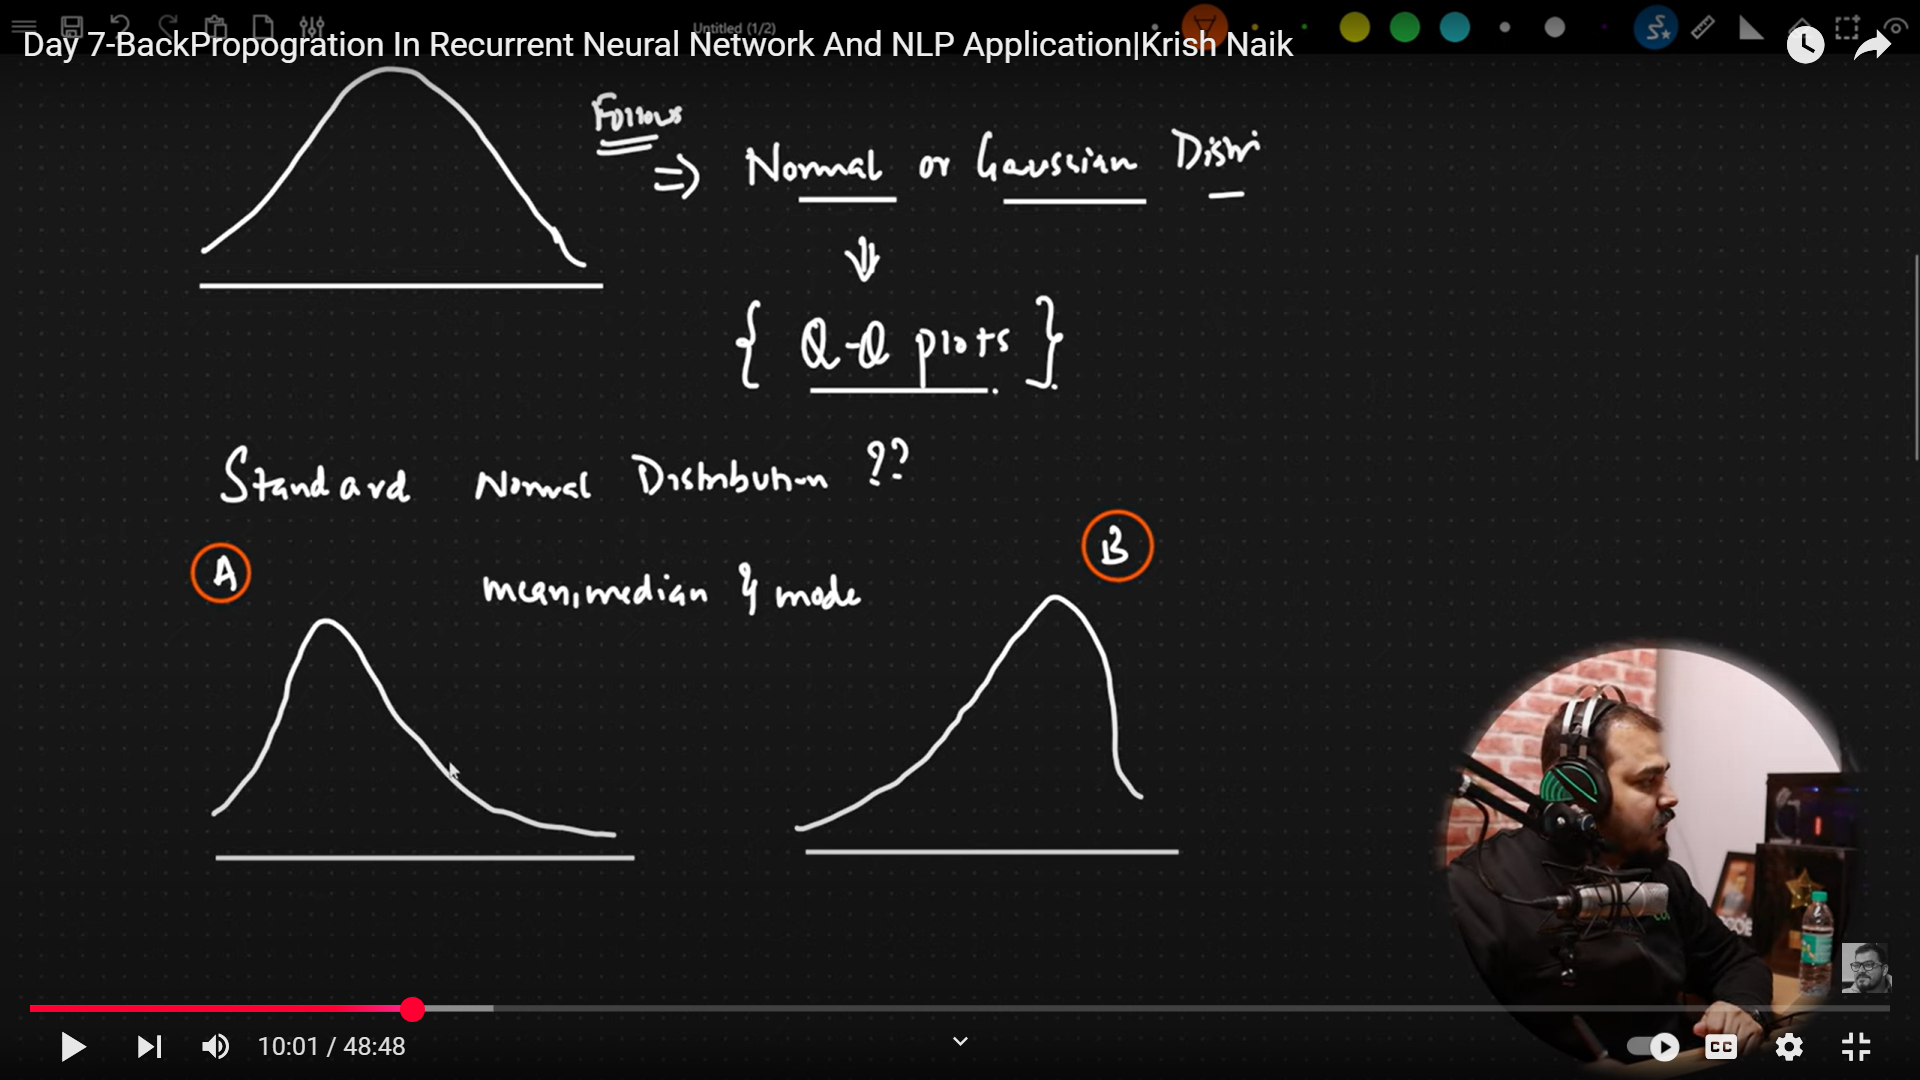 Untitled (1/2)
Day 7-BackPropogration In Recurrent Neural Network And NLP Application|Krish Naik
Follows
⇒ Normal or Gaussian Distri
⇓
{ Q-Q plots }
Standard Normal Distribution ??
A
B
mean, median & mode
10:01 / 48:48
CC